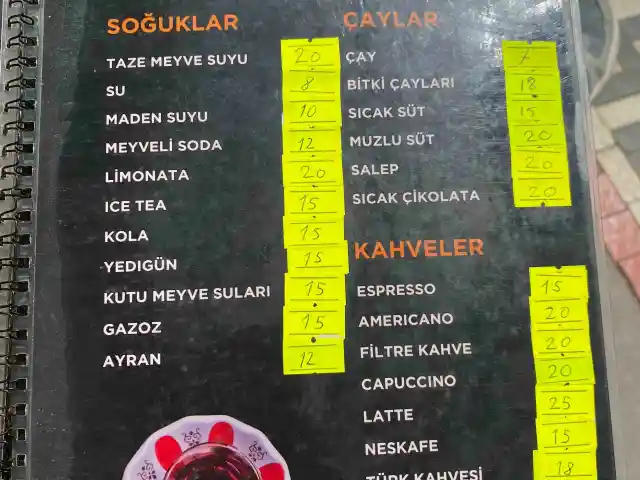 SOĞUKLAR
TAZE MEYVE SUYU 20
SU 8
MADEN SUYU 10
MEYVELİ SODA 12
LİMONATA 20
ICE TEA 15
KOLA 15
YEDIGÜN 15
KUTU MEYVE SULARI 15
GAZOZ 15
AYRAN 12
ÇAYLAR
ÇAY 7
BİTKİ ÇAYLARI 18
SICAK SÜT 15
MUZLU SÜT 20
SALEP 20
SICAK ÇİKOLATA 20
KAHVELER
ESPRESSO 15
AMERICANO 20
FİLTRE KAHVE 20
CAPUCCINO 20
LATTE 25
NESKAFE 15
TÜRK KAHVESİ 18